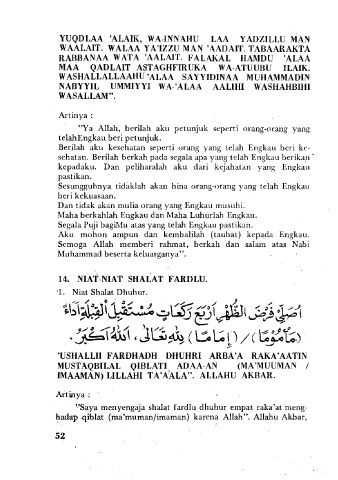 YUQDLAA 'ALAIK, WA-INNAHU LAA YADZILLU MAN
WAALAIT. WALAA YA'IZZU MAN 'AADAIT. TABAARAKTA
RABBANAA WATA 'AALAIT. FALAKAL HAMDU 'ALAA
MAA QADLAIT ASTAGHFIRUKA WA-ATUUBU ILAIK.
WASHALLALLAAHU 'ALAA SAYYIDINAA MUHAMMADIN
NABYYIL UMMIYYI WA-'ALAA AALIHI WASHAHBIHI
WASALLAM".
Artinya :
"Ya Allah, berilah aku petunjuk seperti orang-orang yang
telah Engkau beri petunjuk.
Berilah aku kesehatan seperti orang yang telah Engkau beri ke-
sehatan. Berilah berkah pada segala apa yang telah Engkau berikan
kepadaku. Dan peliharalah aku dari kejahatan yang Engkau
pastikan.
Sesungguhnya tidaklah akan hina orang-orang yang telah Engkau
beri kekuasaan.
Dan tidak akan mulia orang yang Engkau musuhi.
Maha berkahlah Engkau dan Maha Luhurlah Engkau.
Segala Puji bagiMu atas yang telah Engkau pastikan.
Aku mohon ampun dan kembalilah (taubat) kepada Engkau.
Semoga Allah memberi rahmat, berkah dan salam atas Nabi
Muhammad beserta keluarganya".
14. NIAT-NIAT SHALAT FARDLU.
1. Niat Shalat Dhuhur.
اُصَلِّى فَرْضَ الظُّهْرِ اَرْبَعَ رَكَعَاتٍ مُسْتَقْبِلَ الْقِبْلَةِ اَدَاءً
(مَأْمُوْمًا) / (اِمَامًا) لِلّٰهِ تَعَالٰى، اَللهُ اَكْبَرُ.
'USHALLII FARDHADH DHUHRI ARBA'A RAKA'AATIN
MUSTAQBILAL QIBLATI ADAA-AN (MA'MUUMAN /
IMAAMAN) LILLAHI TA'AALA". ALLAHU AKBAR.
Artinya :
"Saya menyengaja shalat fardlu dhuhur empat raka'at meng-
hadap qiblat (ma'muman/imaman) karena Allah". Allahu Akbar,
52